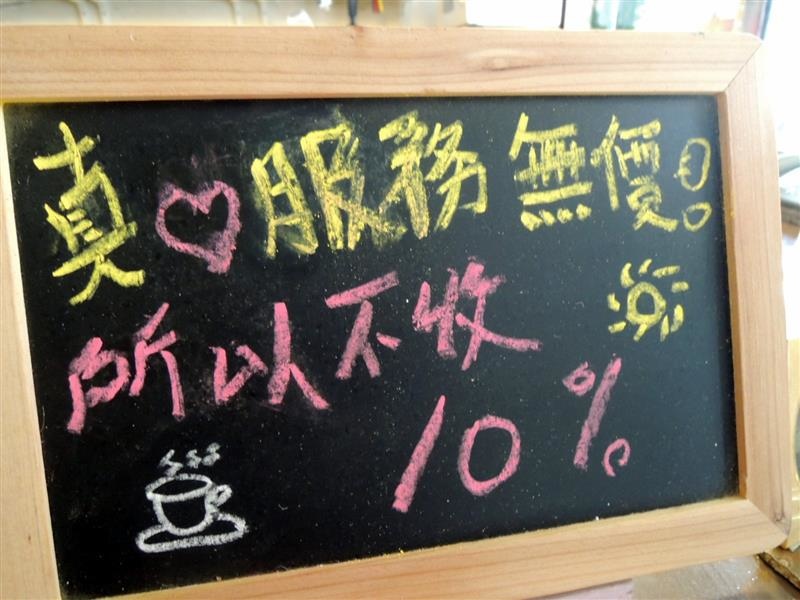 真♡服務無價!
所以不收
10%